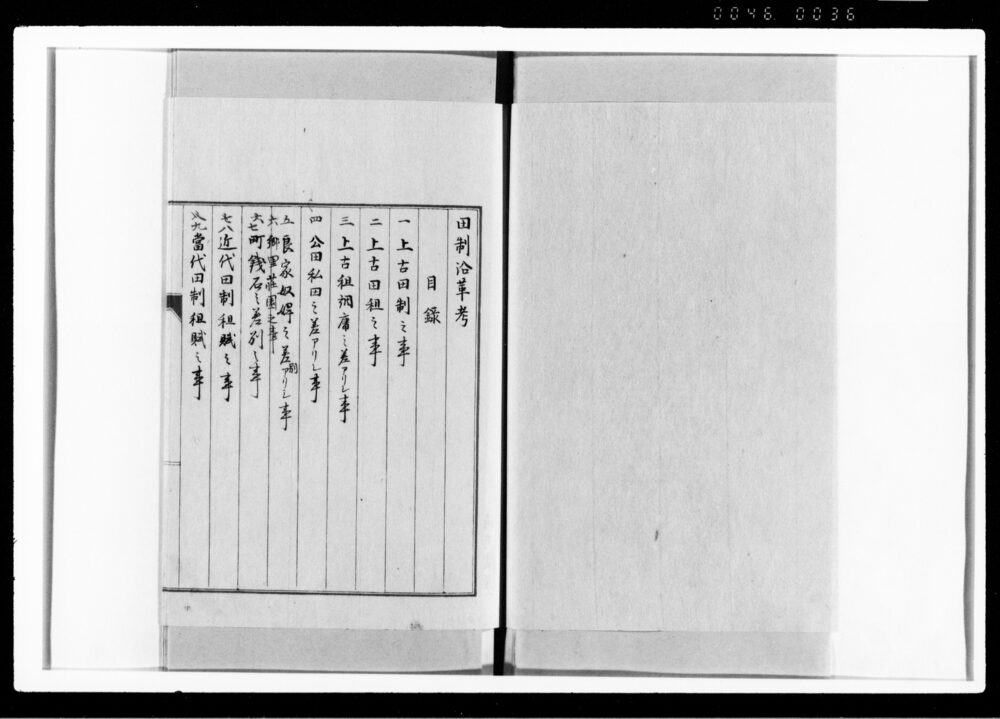 0046. 0036
田制沿革考
目録
一 上古田制之事
二 上古田租之事
三 上古租調庸之差アリシ事
四 公田私田之差アリシ事
五 良家奴婢之差別アリシ事
六 郷里荘園之事
七 町銭石之差別之事
八 近代田制租賦之事
九 當代田制租賦之事